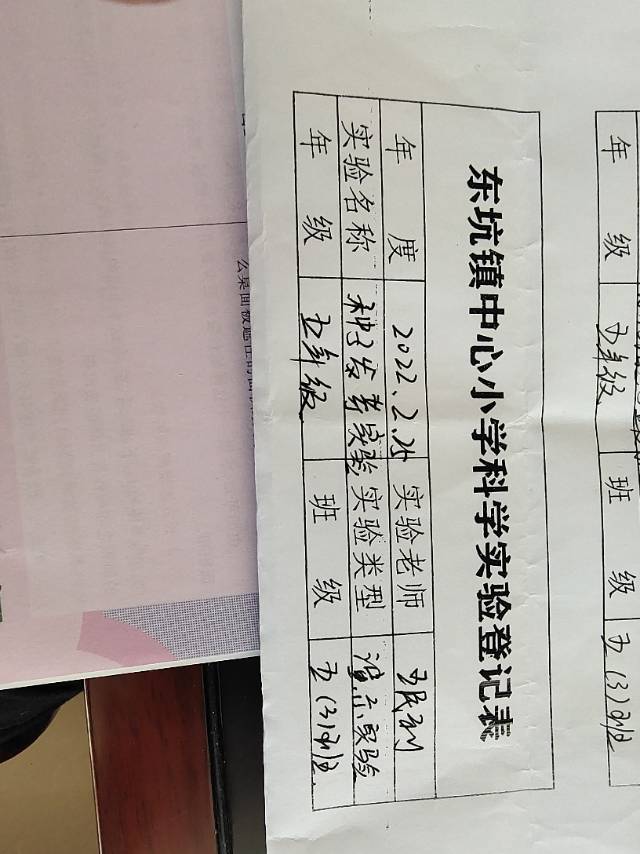 东坑镇中心小学科学实验登记表
年 度 2022.2.25 实验老师
实验名称 种子发芽实验 实验类型 演示实验
年 级 五年级 班 级 五(3)班
年 级 五年级 班 级 五(3)班